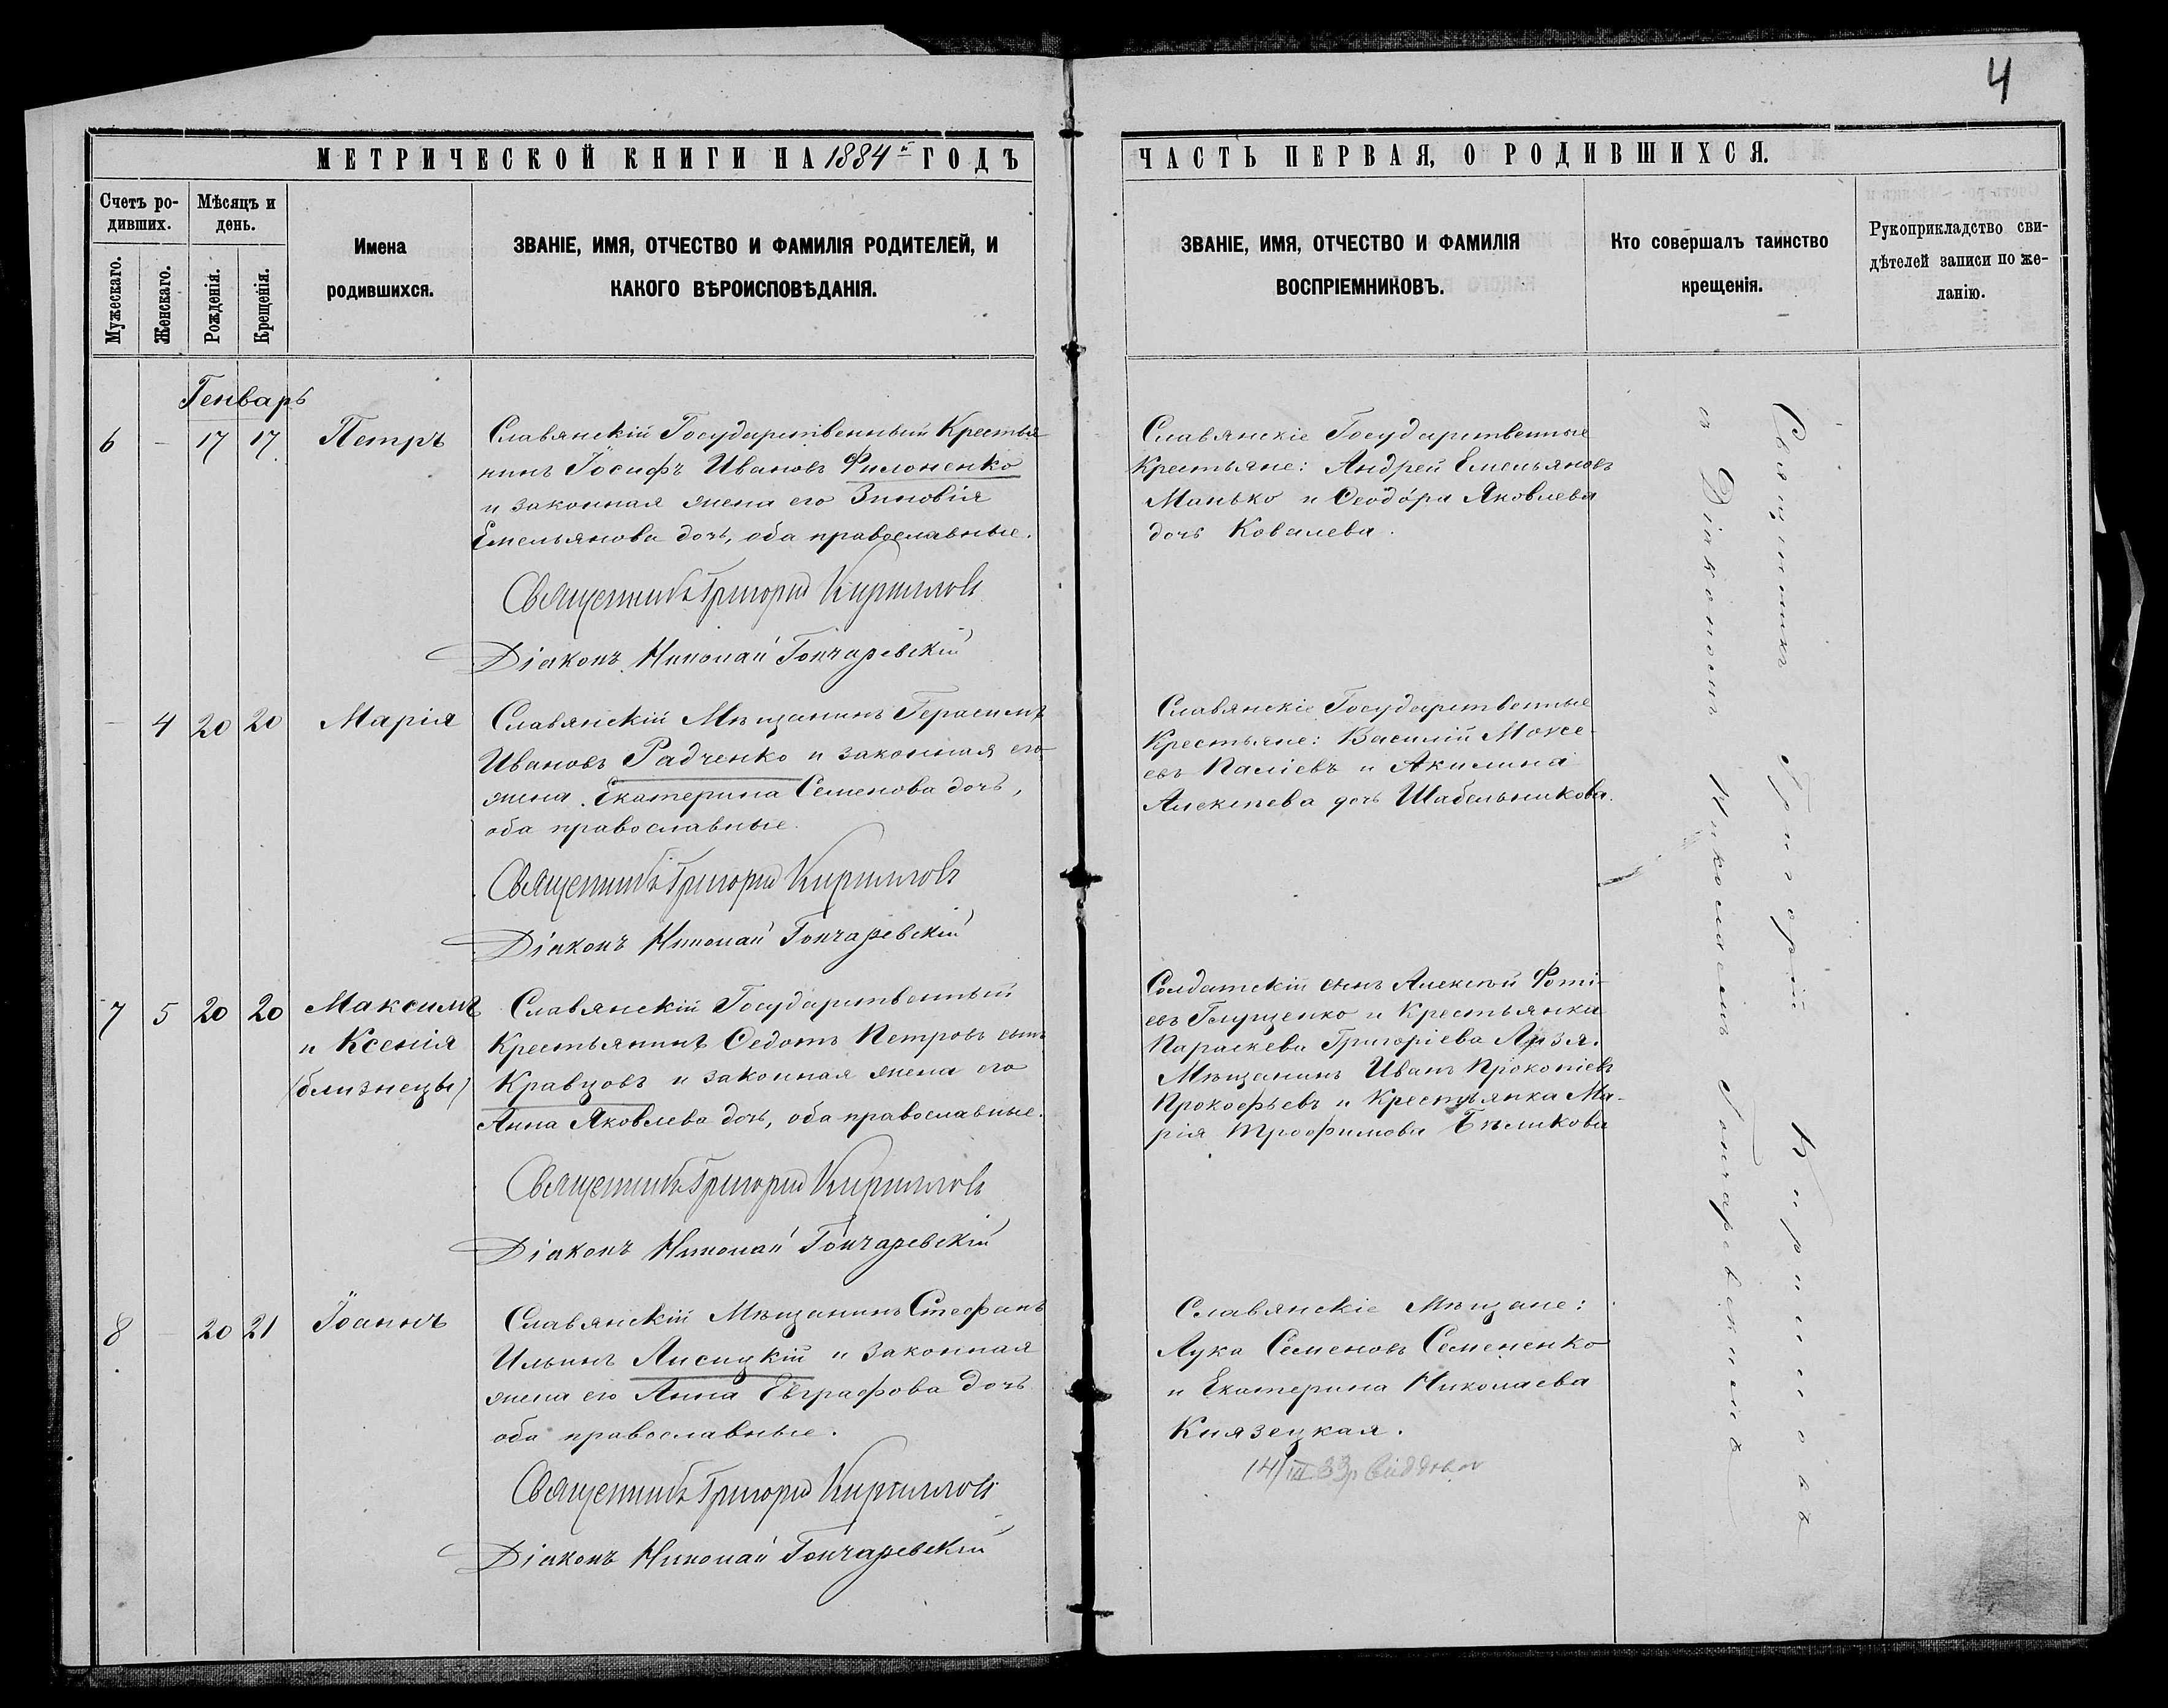 4
МЕТРИЧЕСКОЙ КНИГИ НА 1884й ГОДЪ
Счетъ ро-
дивших.
Мужескаго.
Женскаго.
Мѣсяцъ и
день.
Рожденія.
Крещенія.
Имена
родившихся.
ЗВАНІЕ, ИМЯ, ОТЧЕСТВО И ФАМИЛІЯ РОДИТЕЛЕЙ, И
КАКОГО ВѢРОИСПОВѢДАНІЯ.
ЧАСТЬ ПЕРВАЯ, О РОДИВШИХСЯ.
ЗВАНІЕ, ИМЯ, ОТЧЕСТВО И ФАМИЛІЯ
ВОСПРІЕМНИКОВЪ.
Кто совершалъ таинство
крещенія.
Рукоприкладство сви-
дѣтелей записи по же-
ланію.
Генварь
6 - 17 17 Петръ
Славянскій Государственный Крестья
нинъ Іосифъ Ивановъ Филоненко
и законная жена его Зиновія
Емельянова дочь, оба православные.
Священникъ Григорій Кирилловъ
Діаконъ Николай Гончаревскій
Славянскіе Государственные
Крестьяне: Андрей Емельяновъ
Манько и Ѳеодóра Яковлева
дочь Ковалева.
- 4 20 20 Марія
Славянскій Мѣщанинъ Герасимъ
Ивановъ Радченко и законная его
жена Екатерина Семенова дочь,
оба православные.
Священникъ Григорій Кирилловъ
Діаконъ Николай Гончаревскій
Славянскіе Государственные
Крестьяне: Василій Моисе-
евъ Паліевъ и Акилина
Алексѣева дочь Шабельникова.
7 5 20 20 Максимъ
и Ксенія
(близнецы)
Славянскій Государственный
Крестьянинъ Ѳедотъ Петровъ сынъ
Кравцовъ и законная жена его
Анна Яковлева дочь, оба православные.
Священникъ Григорій Кирилловъ
Діаконъ Николай Гончаревскій
Солдатскій сынъ Алексѣй Фоті-
евъ Глущенко и Крестьянка
Параскева Григоріева
Мѣщанинъ Иванъ Прокопіевъ
Прокофьевъ и Крестьянка Ма-
рія Трофимова Бѣликова
8 - 20 21 Іоаннъ
Славянскій Мѣщанинъ Стефанъ
Ильинъ Лисицкій и законная
жена его Анна Евграфова дочь
оба православные.
Священникъ Григорій Кирилловъ
Діаконъ Николай Гончаревскій
Славянскіе Мѣщане:
Лука Семеновъ Семененко
и Екатерина Николаева
Князецкая.
14/III 33р
Священникъ Григорій Кирилловъ
съ Діакономъ Николаемъ Гончаревскимъ